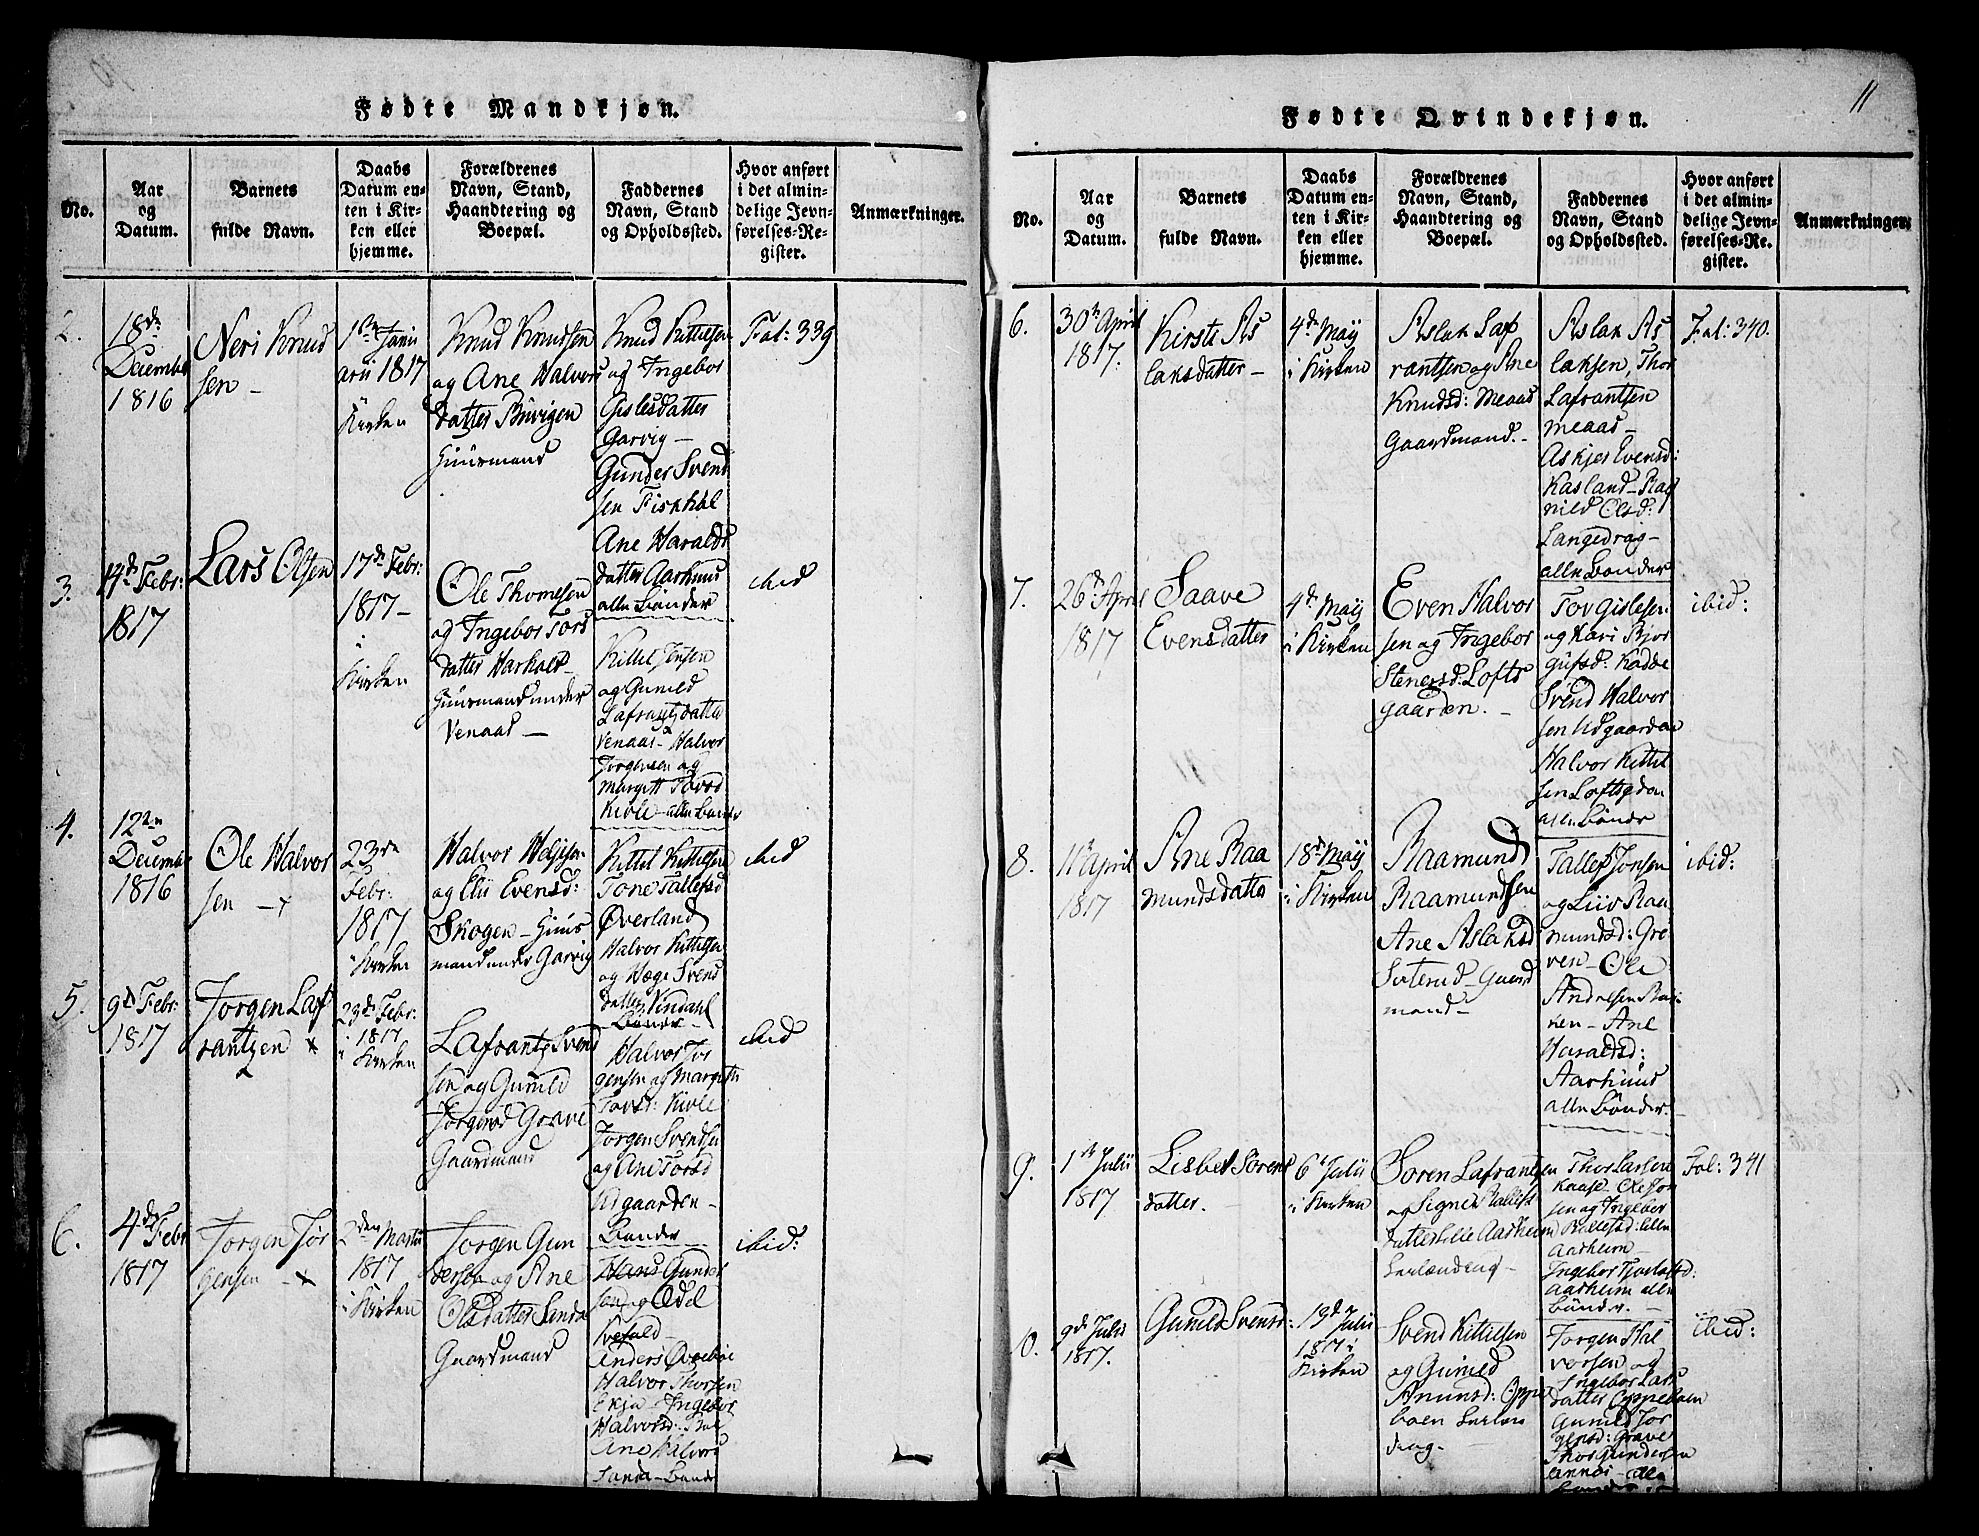 Fødte Mandkjøn.
No.
Aar
og
Datum.
Barnets
fulde Navn.
Daabs
Datum en-
ten i Kir-
ken eller
hjemme.
Forældrenes
Navn, Stand,
Haandtering og
Boepæl.
Faddernes
Navn, Stand
og Opholdssted.
Hvor anført
i det almin-
delige Jevn-
førelses-Re-
gister.
Anmærkninger.
2.
18de
Decembr
1816
Neri Knud
sen –
1ste Janu
arii 1817
Kirken
Knud Knudsen
og Ane Halvors
datter
Huusmand
Knud Kittilsen
og Ingebor
Gislesdatter
Garvig –
Gunder Svend
sen
Ane Haralds
datter Aarhuus
alle Bønder
Fol: 339
3.
4de Febr:
1817
Lars Olsen
17de Febr:
1817 –
i
Kirken
Ole Thomesen
og Ingebor Tors
datter
Huusmand under
Venaas –
Kittel Jensen
og Gunild
Lafrantzdatter
Venaas – Halvor
Jørgensen og
Margitt Tovsd
Kivle – alle Bønder
ibid
4.
12te
Decembr
1816
Ole Halvor
sen – x
23de
Febr:
1817
i Kirken
Halvor
og Elii Evensd:
Skogen – Huus
mand under Garvig
Kittel Kittilsen
Tone Tallefsd
Øverland
Halvor Kittilsen
og Hæge Svends
datter Vindahl
Bønder –
ibid
5.
9de Febr:
1817
Jørgen Laf
rantzen x
23de Febr:
1817
i Kirken
Lafrantz Svend
sen og Gunild
Jørgensd Grave
Gaardmand
Halvor Jør
gensen og Margitte
Tovsd: Kivle
Jørgen Svendsen
og Ane Torsd
Udgaarden –
Bønder
ibid
6.
4de Febr
1817
Jørgen Jør
gensen – x
2den Martii
1817
i Kirken
Jørgen Gun
dersen og Ane
Olsdatter Sanda
Gaardmand
Hans Gunder
sen og Ædel
Anders Øvrebøe
Halvor Thorsen
Ekja – Ingebor
Halvorsd:
Ane Halvors
Sanda – Bønder
ibid:
11
Fødte Qvindekjøn.
No.
Aar
og
Datum.
Barnets
fulde Navn.
Daabs
Datum en-
ten i Kir-
ken eller
hjemme.
Forældrenes
Navn, Stand,
Haandtering og
Boepæl.
Faddernes
Navn, Stand
og Opholdssted.
Hvor anført
i det almin-
delige Jevn-
førelses-Re-
gister.
Anmærkninger.
6.
30te April
1817:
Kirsti As
laksdatter –
4de Maÿ
i Kirken
Aslak Laf
rantsen og Ane
Knudsd: Meaas
Gaardmand. –
Aslak As
laksen, Thor
Lafrantsen
Meaas –
Askjer Evensd:
Kasland – Rag
nild Olsd:
Langedrag –
alle Bønder
Fol: 340.
7.
26de April
1817
Saave
Evensdatter
4de Maÿ
i Kirken
Even Halvor
sen og Ingebor
Stenersd: Lofts
gaarden. –
Tov Gislesen
og Kari Bjor
gufsd: Kodde
Svend Halvor
sen Udgaarden
Halvor Kittil
sen Loftsgden
alle Bønder
ibid:
8.
11te April
1817
Ane Raa
mundsdatter
18de Maÿ
i Kirken
Raamund
Raamundsen
Ane Aslaksd
Gaard
mand –
Tallef Jonsen
og Liiv Raa
mundsd: Gro
ven – Ole
Andersen
ken – Ane
Haraldsd:
Aarhuus
alle Bønder. –
ibid:
9.
1te Julii
1817
Lisbet Sørens
datter.
6te Julii
i Kirken
Søren Lafrantzen
og Signe
datter Aasheim
Thor Larsen
Ole Jon
sen og Ingebor
Aasheim –
Ingebor
Aasheim alle
Bønder. –
Fol: 341
10.
9de Julii
1817.
Gunild Svensd:
13de Julii
1817 i
Kirken
Svend Kittilsen
og Gunild
Amunsd: Oppe
boen
Jørgen Hal
vorsen og
Ingebor Lars
datter Oppeboen
Gunild Jør
gensd: Grave
Thor Gundersen
ibid: